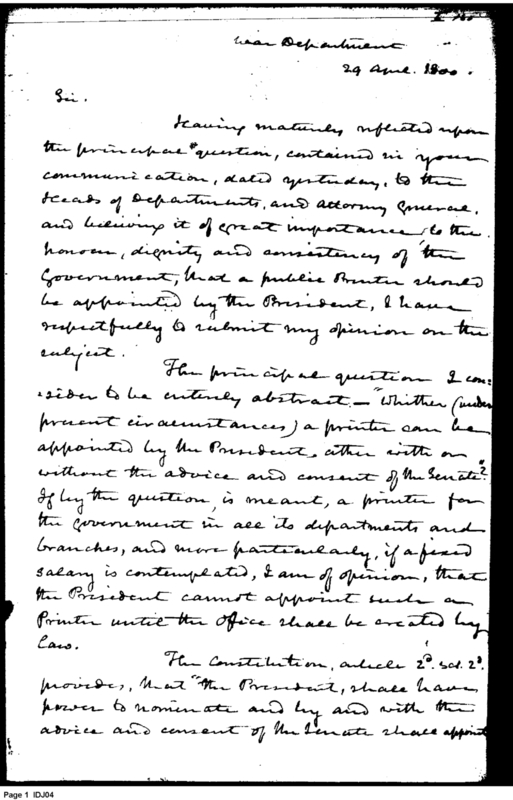 War Department
29 April. 1800.
Sir.
Having maturely reflected upon
the principal question, contained in your
communication, dated yesterday, to the
Heads of Departments, and Attorney General,
and believing it of great importance to the
honour, dignity and consistency of the
Government, that a public Printer should
be appointed by the President, I have
respectfully to submit my opinion on the
subject.
The principal question I con=
=sider to be entirely abstract — "Whether (under
present circumstances) a printer can be
appointed by the President, either with or
without the advice and consent of the Senate"?
If by the question, is meant, a printer for
the government in all its departments and
branches, and more particularly, if a fixed
salary is contemplated, I am of opinion, that
the President cannot appoint such a
Printer until the office shall be created by
law.
The Constitution, article 2d. Sec. 2d.
provides, that "the President, shall have
power to nominate and by and with the
advice and consent of the Senate shall appoint
Page 1 IDJ04